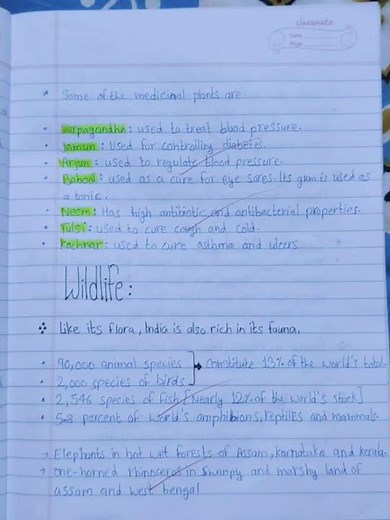 classmate
Date
Page
* Some of the medicinal plants are
• Sarpagandha: used to treat blood pressure.
• Jamun: Used for controlling diabetes.
• Arjun: used to regulate blood pressure.
• Babool: used as a cure for eye sores. Its gum is used as
a tonic.
• Neem: Has high antibiotic and antibacterial properties.
• Tulsi: used to cure cough and cold.
• Kachnar: used to cure asthma and ulcers
Wildlife:
❖ Like its flora, India is also rich in its fauna.
• 90,000 animal species ] → constitute 13% of the world's total
• 2,000 species of birds
• 2,546 species of fish [Nearly 12% of the world's stock]
• 5-8 percent of world's amphibians, reptiles and mammals
→ Elephants in hot wet forests of Assam, Karnataka and Kerala.
→ one-horned rhinoceros in Swampy and marshy land of
assam and west bengal